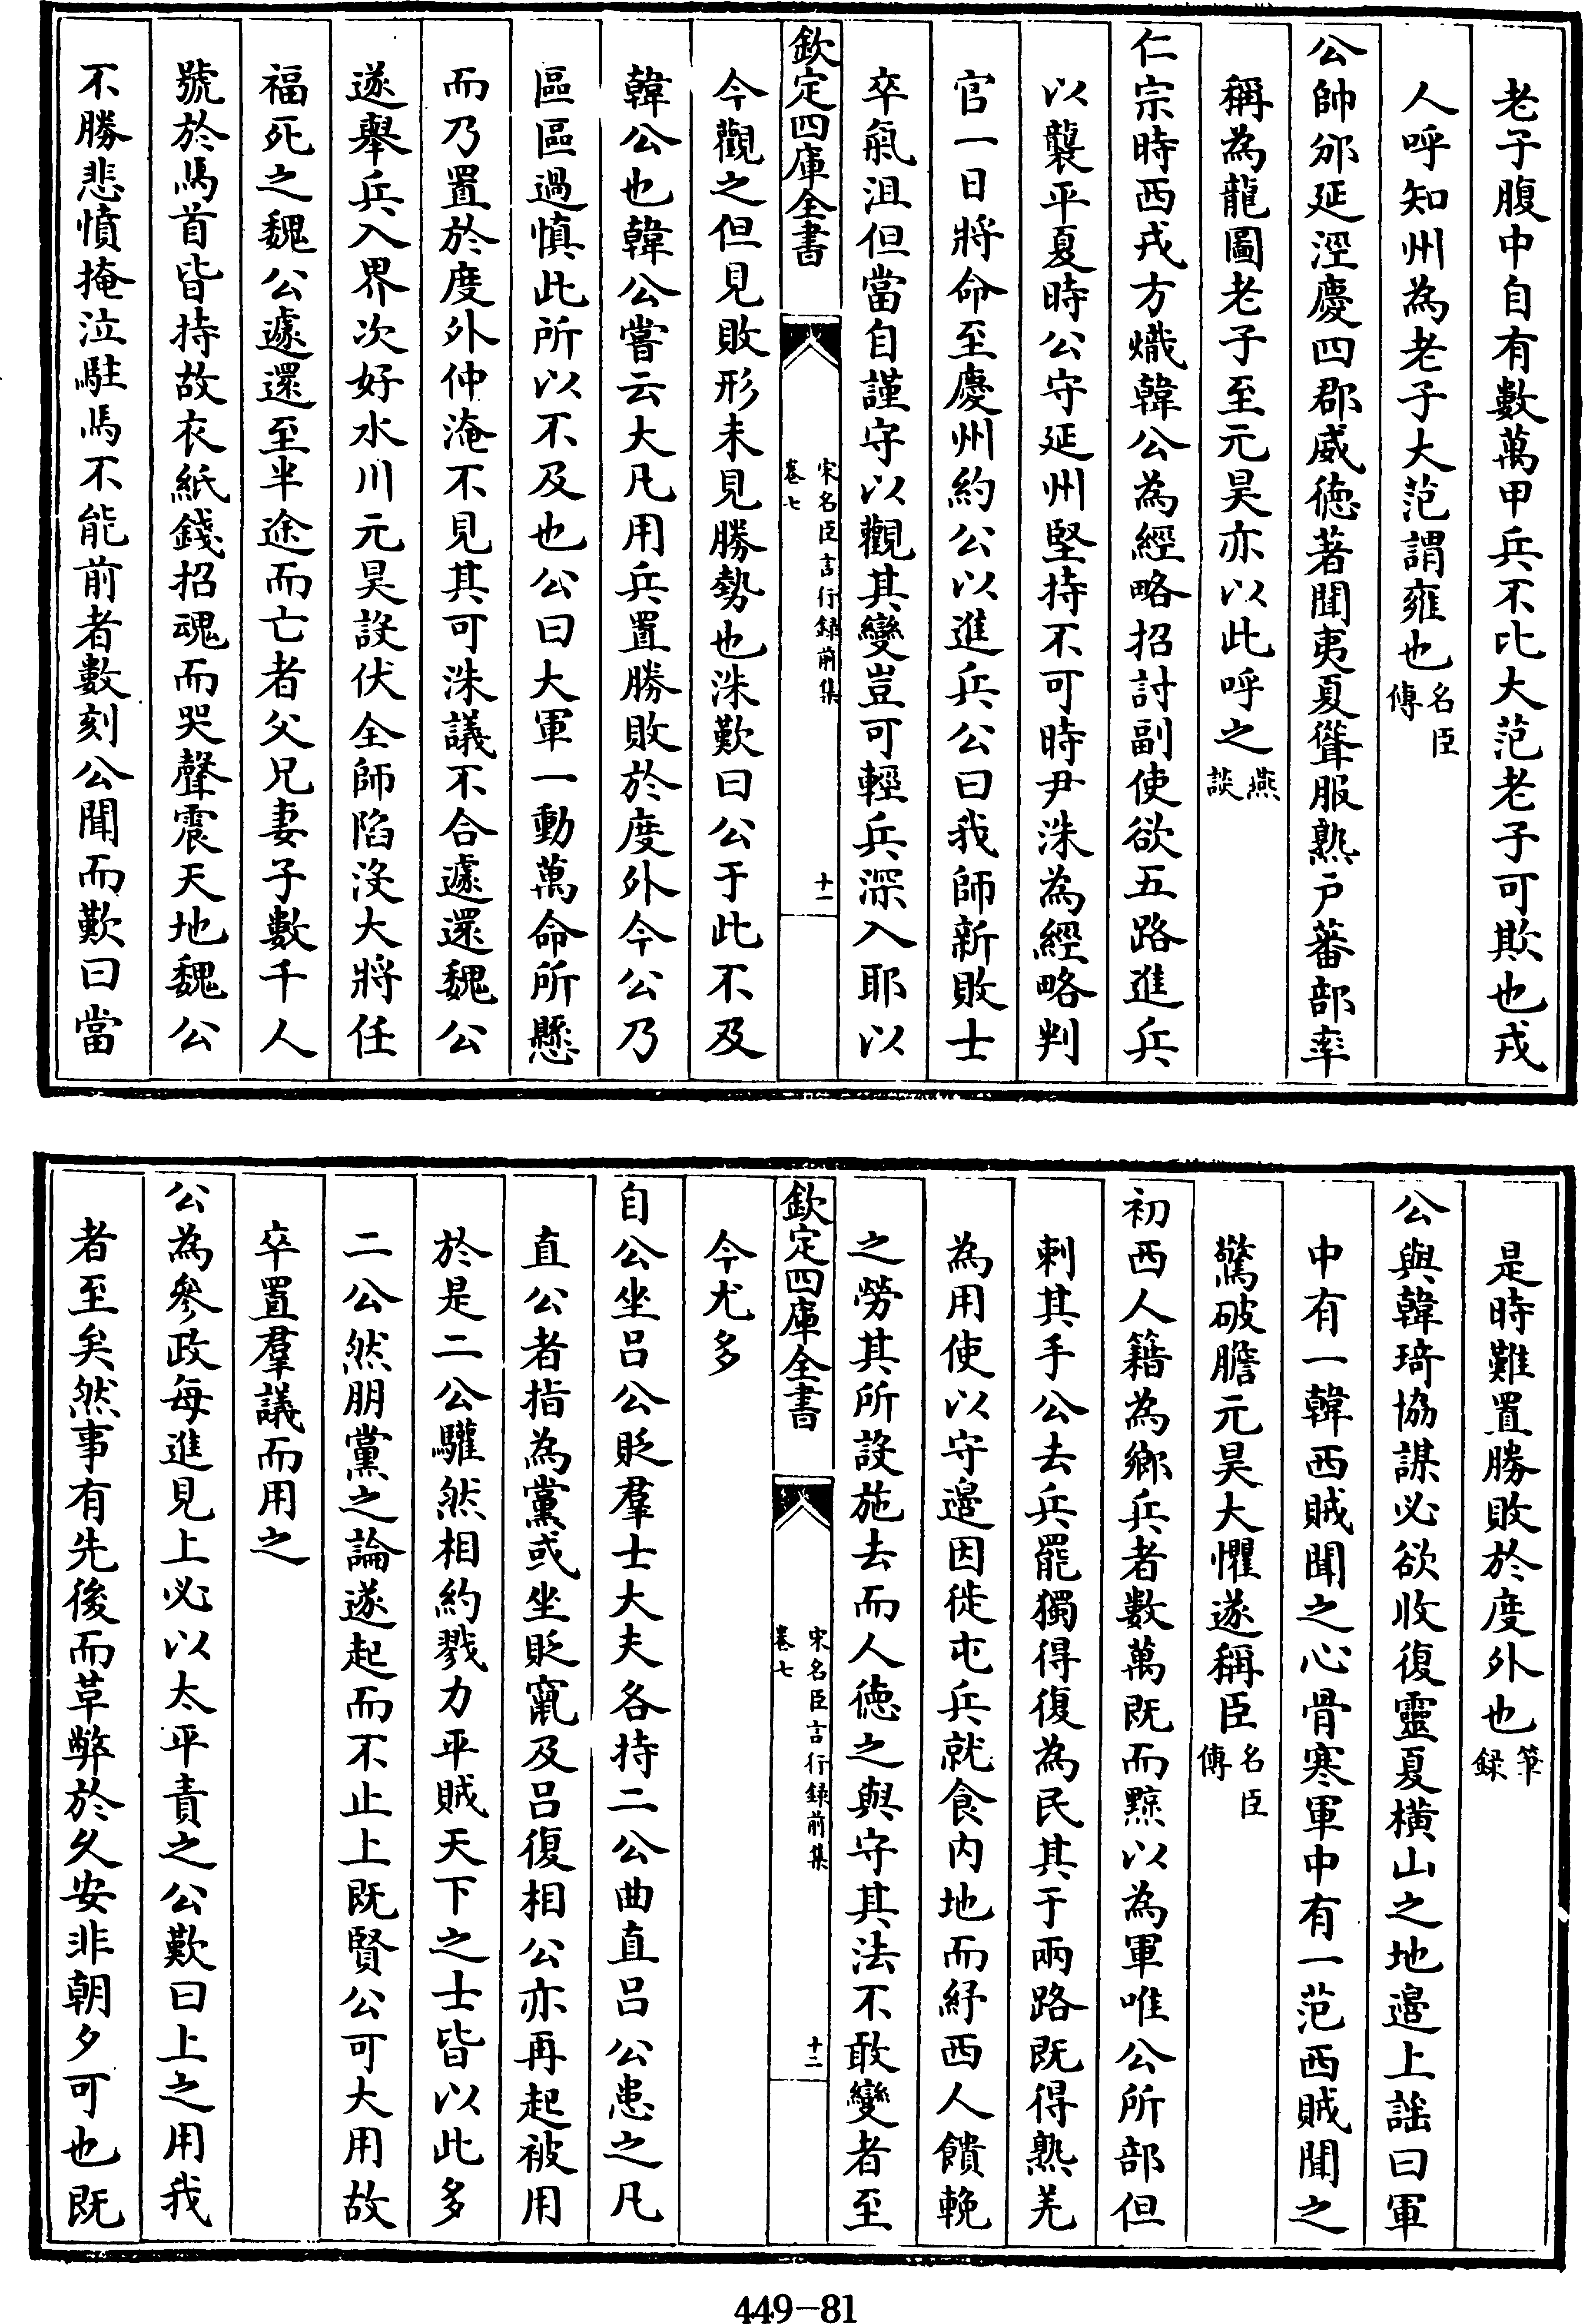 老子腹中自有數萬甲兵不比大范老子可欺也戎
人呼知州為老子大范謂雍也名臣傳
公帥邠延涇慶四郡威徳著聞夷夏聳服熟户蕃部率
稱為龍圖老子至元昊亦以此呼之燕談
仁宗時西戎方熾韓公為經略招討副使欲五路進兵
以襲平夏時公守延州堅持不可時尹洙為經略判
官一日將命至慶州約公以進兵公曰我師新敗士
卒氣沮但當自謹守以觀其變豈可輕兵深入耶以
欽定四庫全書 宋名臣言行録前集 卷七 十一
今觀之但見敗形未見勝勢也洙歎曰公于此不及
韓公也韓公嘗云大凡用兵置勝敗於度外今公乃
區區過慎此所以不及也公曰大軍一動萬命所懸
而乃置於度外仲淹不見其可洙議不合遽還魏公
遂舉兵入界次好水川元昊設伏全師陷沒大將任
福死之魏公遽還至半途而亡者父兄妻子數千人
號於馬首皆持故衣紙錢招魂而哭聲震天地魏公
不勝悲憤掩泣駐馬不能前者數刻公聞而歎曰當
是時難置勝敗於度外也筆録
公與韓琦協謀必欲收復靈夏橫山之地邊上謡曰軍
中有一韓西賊聞之心骨寒軍中有一范西賊聞之
驚破膽元昊大懼遂稱臣名臣傳
初西人籍為鄉兵者數萬既而黥以為軍唯公所部但
刺其手公去兵罷獨得復為民其于兩路既得熟羌
為用使以守邊因徙屯兵就食内地而紓西人饋輓
之勞其所設施去而人徳之與守其法不敢變者至
欽定四庫全書 宋名臣言行録前集 卷七 十二
今尤多
自公坐吕公貶羣士大夫各持二公曲直吕公患之凡
直公者指為黨或坐貶竄及吕復相公亦再起被用
於是二公驩然相約戮力平賊天下之士皆以此多
二公然朋黨之論遂起而不止上既賢公可大用故
卒置羣議而用之
公為參政每進見上必以太平責之公歎曰上之用我
者至矣然事有先後而革弊於久安非朝夕可也既
449-81